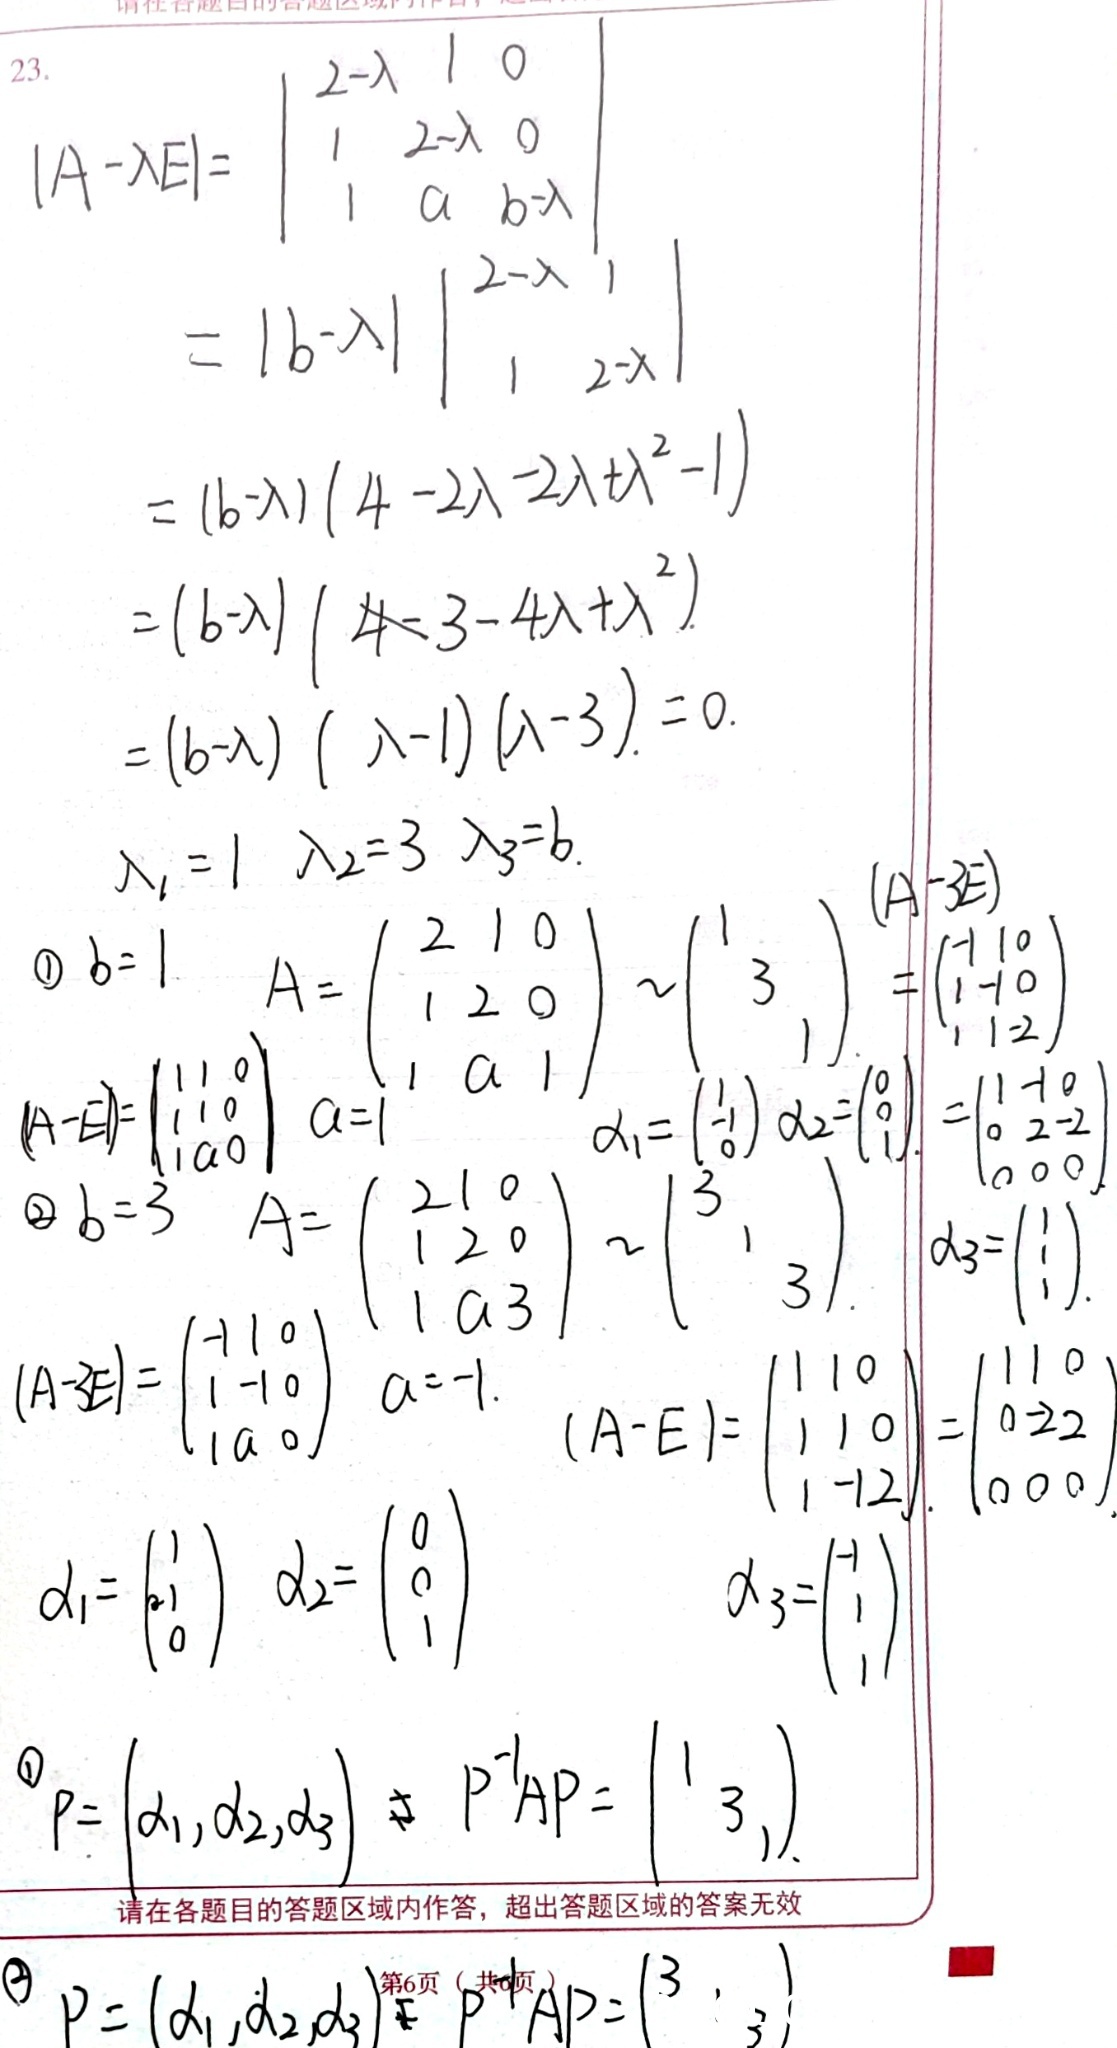 23.
|A-λE|= | 2-λ 1 0 |
| 1 2-λ 0 |
| 1 a b-λ |
= |b-λ| | 2-λ 1 |
| 1 2-λ |
= (b-λ)(4-2λ-2λ+λ²-1)
= (b-λ)(3-4λ+λ²)
= (b-λ)(λ-1)(λ-3)=0.
λ₁=1 λ₂=3 λ₃=b.
① b=1 A= (2 1 0
1 2 0
1 a 1) ~ (1
3
1).
(A-3E)
= (-1 1 0
1 -1 0
1 1 -2)
(A-E)= (1 1 0
1 1 0
1 a 0) a=1
α₁= (1
-1
0) α₂= (0
0
1).
= (1 -1 0
0 2 -2
0 0 0).
α₃= (1
1
1).
② b=3 A= (2 1 0
1 2 0
1 a 3) ~ (3
1
3).
(A-3E)= (-1 1 0
1 -1 0
1 a 0) a=-1.
(A-E)= (1 1 0
1 1 0
1 -1 2). = (1 1 0
0 -2 2
0 0 0).
α₁= (1
1
0) α₂= (0
0
1)
α₃= (-1
1
1)
① P=(α₁,α₂,α₃) P⁻¹AP= (1
3
1).
请在各题目的答题区域内作答，超出答题区域的答案无效
第6页（共6页）
② P=(α₁,α₂,α₃) P⁻¹AP= (3
1
3)